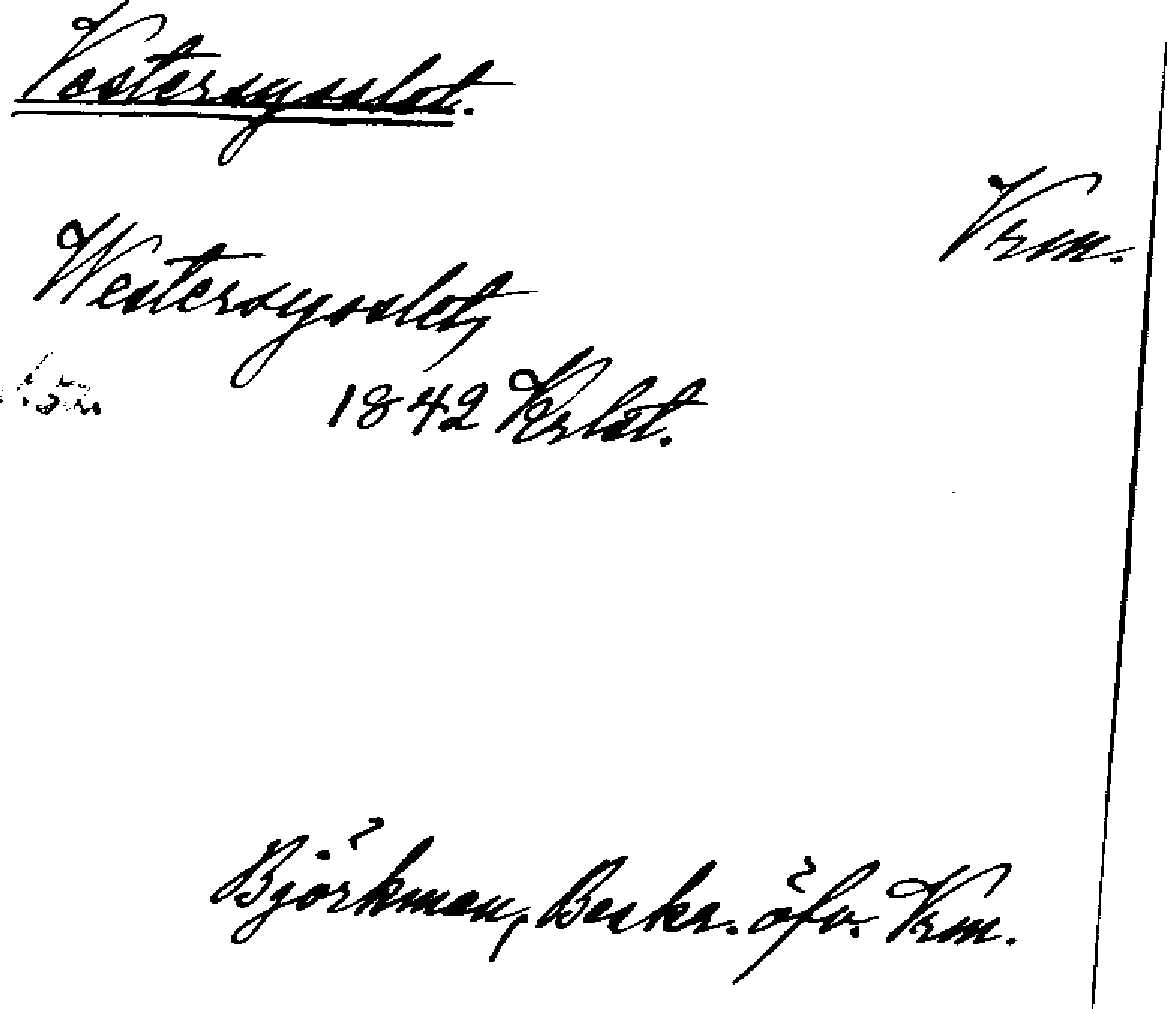 Vestersysslet.
Vrm.
Westersysslet,
1842 Krlst.
Björkman, Beskr. öfv. Vrm.